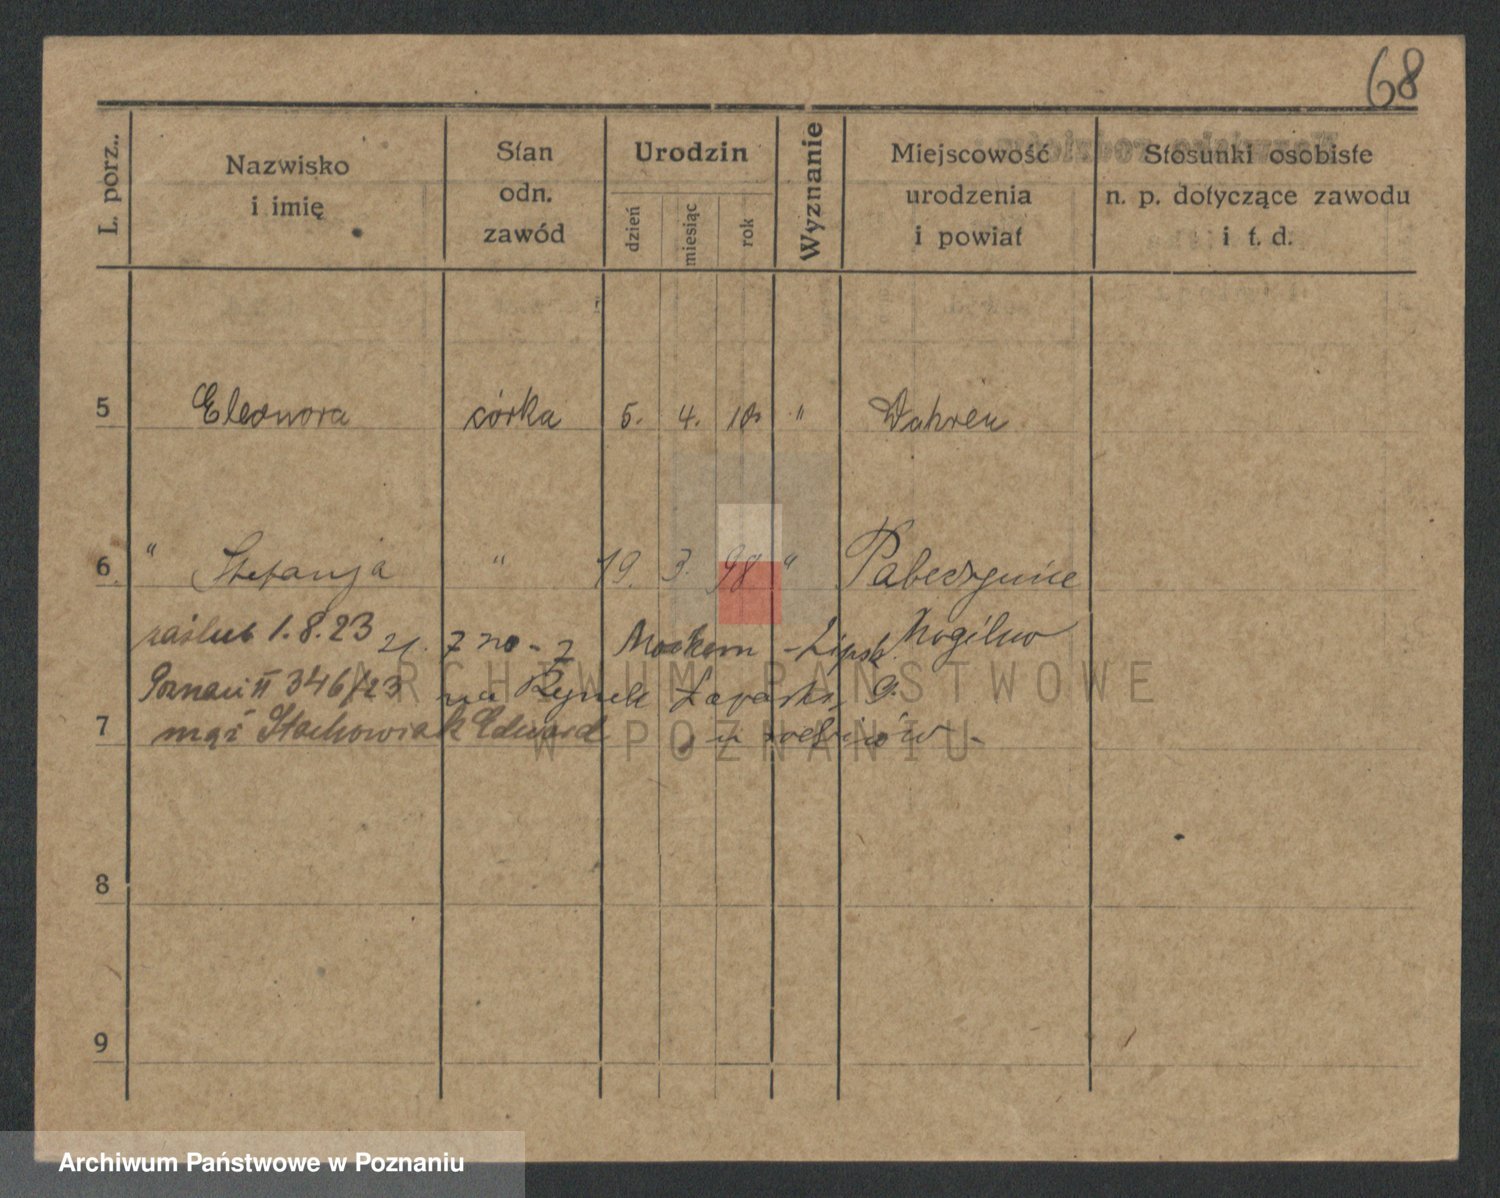 68
L. porz.. Nazwisko i imię Stan odn. zawód Urodzin dzień miesiąc rok Wyznanie Miejscowość urodzenia i powiat Stosunki osobiste n. p. dotyczące zawodu i t. d.
5 Eleonora córka 5. 4. " Wahren
6 " Stefanja " 19. 3. 98 "
zaślub 1.8.23 21. 7 20 - Mockern - Lipsk. Mogilno
Poznań II 346/23 na Rynek Łazarski, 9.
7 mąż Stachowiak Edward u rodziców -
8
9
ARCHIWUM PAŃSTWOWE
W POZNANIU
Archiwum Państwowe w Poznaniu